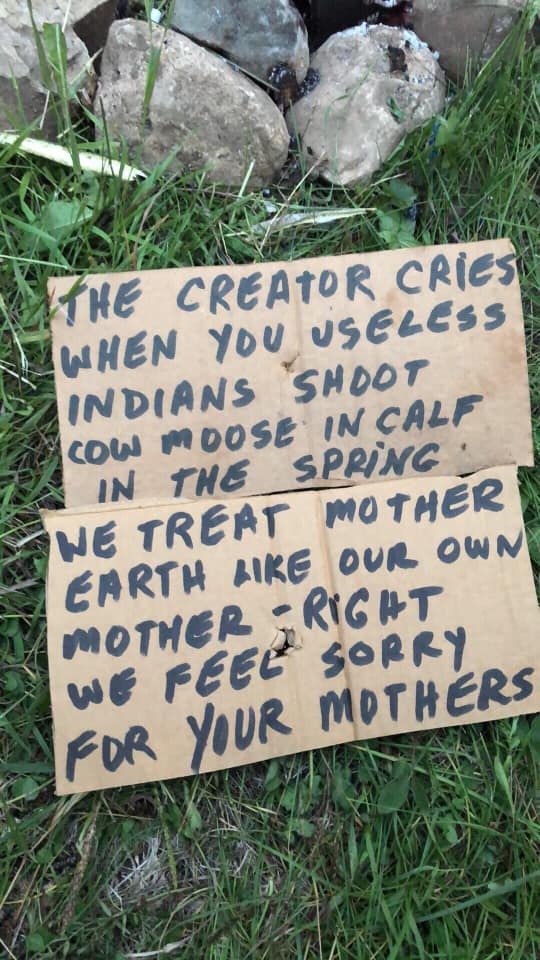 THE CREATOR CRIES
WHEN YOU USELESS
INDIANS SHOOT
COW MOOSE IN CALF
IN THE SPRING
WE TREAT MOTHER
EARTH LIKE OUR OWN
MOTHER - RIGHT
WE FEEL SORRY
FOR YOUR MOTHERS